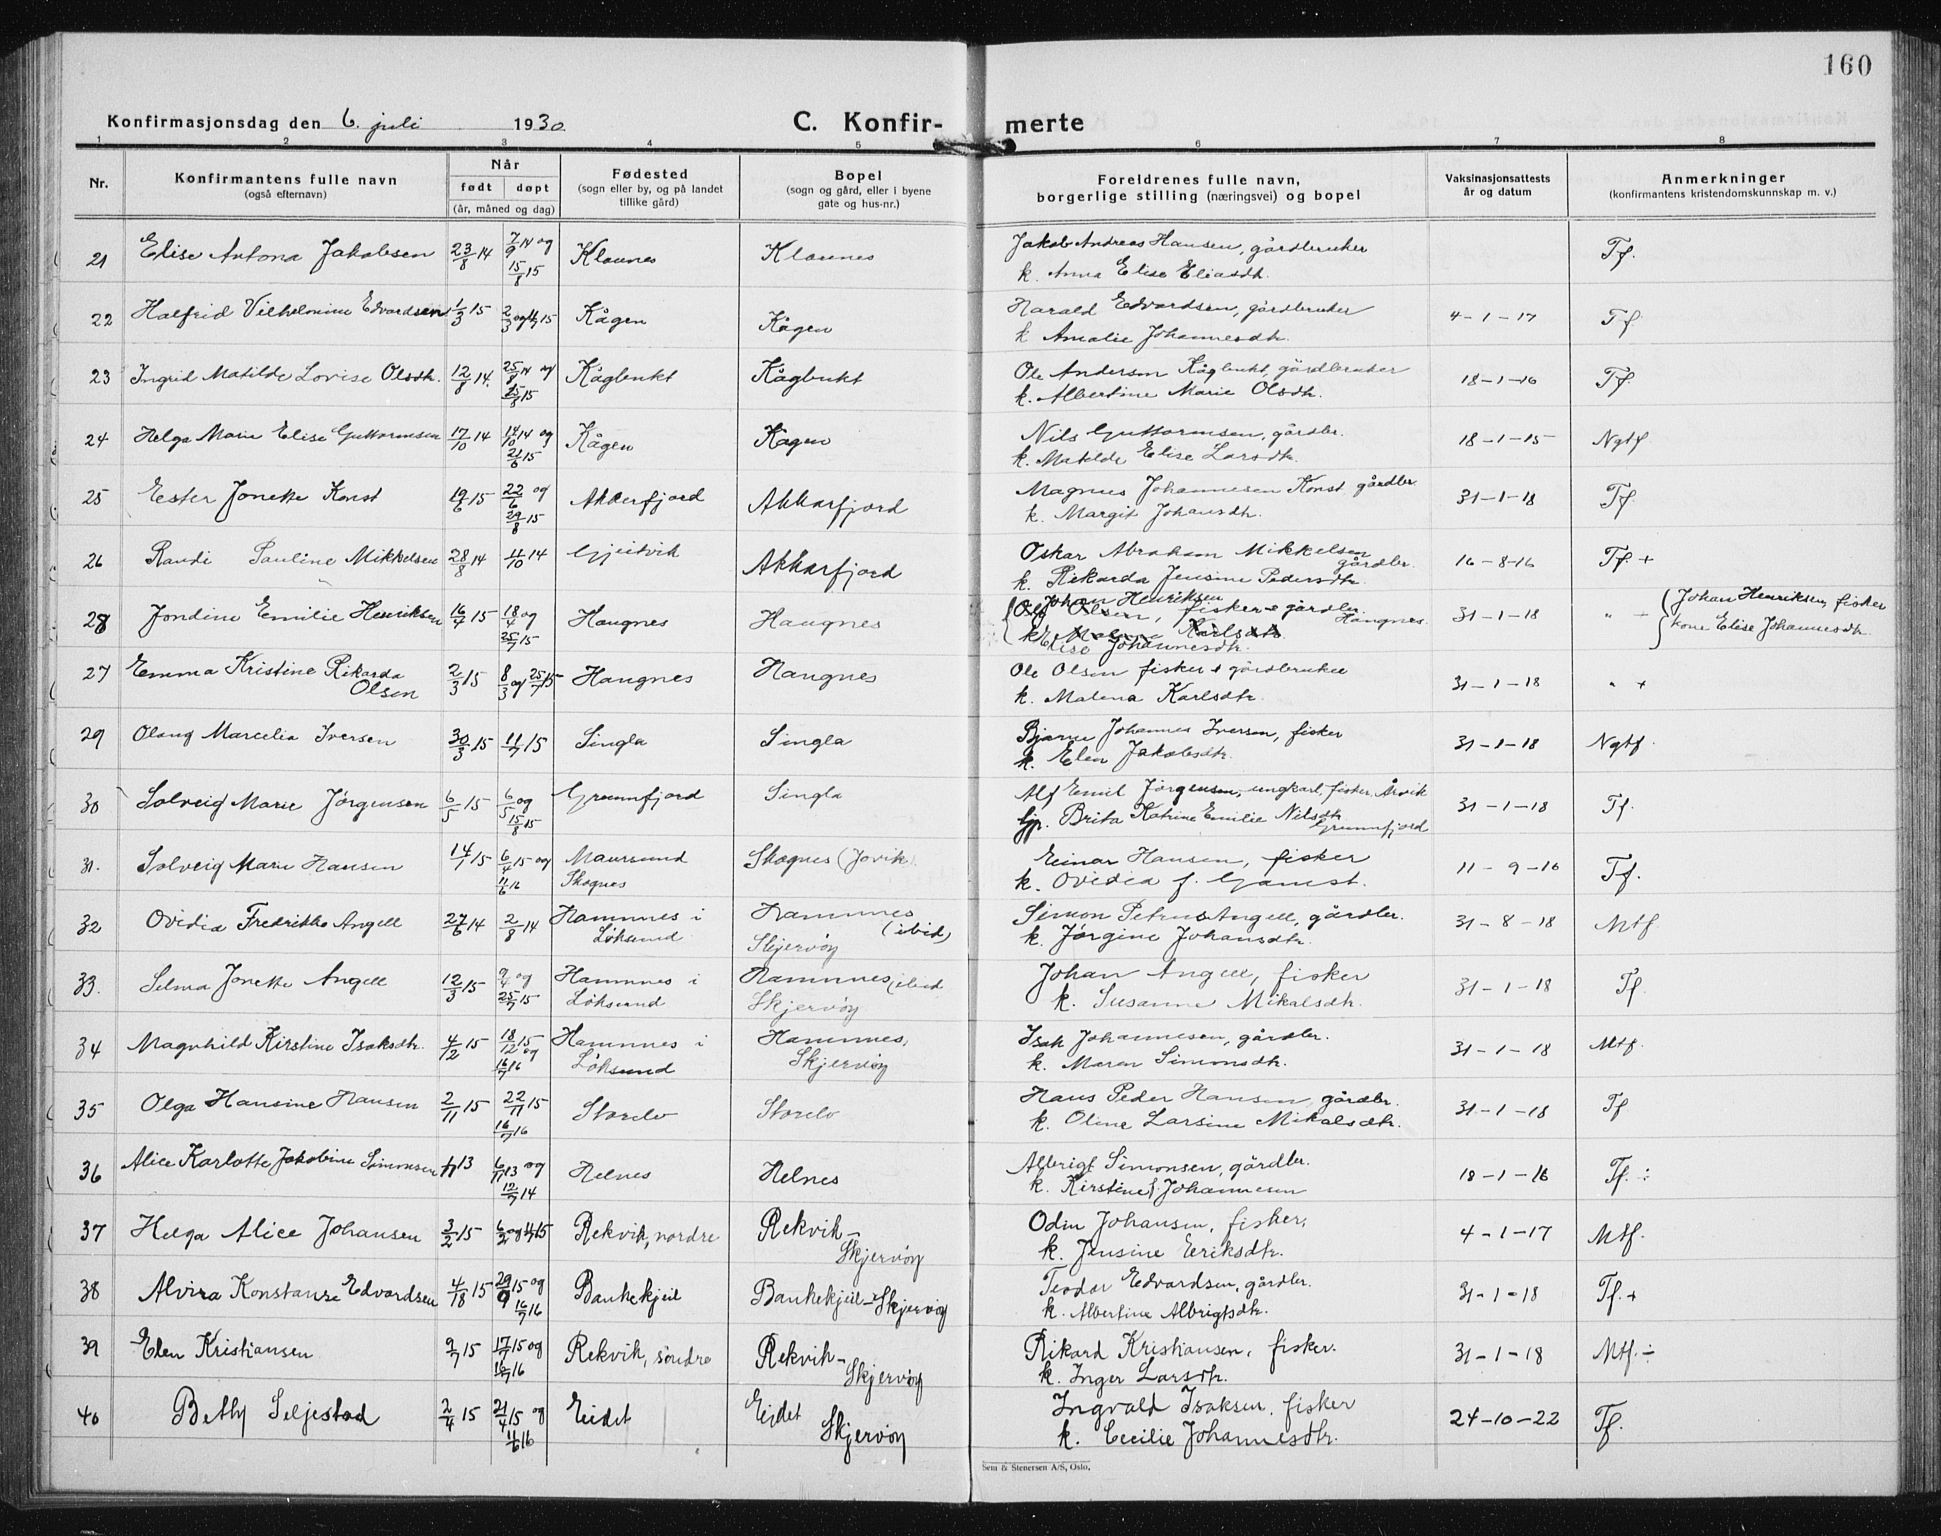 160
Konfirmasjonsdag den 6. juli 1930
C. Konfirmerte
1 2 3 4 5 6 7 8
Nr.
Konfirmantens fulle navn
(også efternavn)
Når
født døpt
(år, måned og dag)
Fødested
(sogn eller by, og på landet
tillike gård)
Bopel
(sogn og gård, eller i byene
gate og hus-nr.)
Foreldrenes fulle navn,
borgerlige stilling (næringsvei) og bopel
Vaksinasjonsattests
år og datum
Anmerkninger
(konfirmantens kristendomskunnskap m. v.)
21 Elise Antona Jakobsen 23/8 14 7/9 14 og 15/8 15 Klaunes Klaunes Jakob Andreas Hansen, gårdbruker Tf.
k. Anna Elise Eliasdtr.
22 Halfrid Vilhelmine Edvardsen 1/3 15 Kågen Kågen Harald Edvardsen, gårdbruker 4-1-17 Tf.
k Amalie Johannesdtr.
23 Ingrid Matilde Lovise Olsdtr. 12/8 14. 25/8 14 og 15/8 15 Kågbukt Kågbukt Ole Anderson Kågbukt, gårdbruker 18-1-16 Tf.
k. Albertine Marie Olsdtr.
24 Helga Marie Elise Guttormsen 17/10 14 og 21/6 15 Kågen Kågen Nils Guttormsen, gårdbr. 18-1-15 Ngtf
k. Matilde Elise Larsdtr.
25 Ester Jonette Konst 19/6 15 22/6 og 29/8 15 Akkarfjord Akkarfjord Magnus Johannesen Konst gårdbr. 31-1-18 Tf.
k. Margit Johansdtr.
26 Randi Pauline Mikkelsen 28/8 14 11/10 14 Gjeitvik Akkarfjord Oskar Abraham Mikkelsen gårdbr. 16-8-16 Tf. +
k. Rikarda Jensine Pedersdtr.
28 Jondine Emilie Henriksen 16/4 15 18/4 og 25/7 15 Haugnes Haugnes Johan Henriksen Ole Olsen, fisker & gårdbr. Haugnes. 31-1-18 " + Johan Henriksen, fisker
k. Malene Karlsdtr. Elise Johannesdtr. kone Elise Johannesdtr.
27 Emma Kristine Rikarda Olsen 2/3 15 8/3 og 25/7 15 Haugnes Haugnes Ole Olsen fisker & gårdbruker 31-1-18 " +
k. Malena Karlsdtr.
29 Olaug Marcelia Iversen 30/3 15 11/7 15 Singla Singla Bjarne Johannes Iversen, fisker 31-1-18 Ngtf.
k. Elen Jakobsdtr.
30 Solveig Marie Jørgensen 6/5 15 6/5 og 15/8 15 Grunnfjord Singla Alf Emil Jørgensen, ungkarl, fisker, Årvik 31-1-18 Tf.
Gp. Brita Katrine Emilie Nilsdtr. Grunnfjord
31. Solveig Marie Hansen 14/1 15 6/4 15 og 11/6 16 Maursund Skognes Skognes (Jovik) Einar Hansen, fisker 11-9-16 Tf.
k. Ovidia f. Gamst.
32 Ovidia Fredrikke Angell 27/6 14 2/8 14 Hamnnes i Løksund Hamnnes (ibid) Skjervøy Simon Petrus Angell, gårdbr. 31-8-18 Mtf.
k. Jørgine Johansdtr.
33. Selma Jonette Angell 12/3 15 9/4 og 25/7 15 Hamnnes i Løksund Hamnnes (ibid Skjervøy Johan Angell, fisker 31-1-18 Tf.
k. Susanne Mikalsdtr.
34 Magnhild Kirstine Isaksdtr. 4/12 15 18/12 15 og 16/7 16 Hamnnes i Løksund Hamnnes, Skjervøy Isak Johannesen, gårdbr. 31-1-18 Mtf.
k. Maren Simonsdtr.
35 Olga Hansine Hansen 2/11 15 22/11 15 16/7 16 Storelv Storelv Hans Peder Hansen, gårdbr. 31-1-18 Tf
k. Oline Larsine Mikalsdtr.
36 Alice Karlotte Jakobine Simonsen 13 6/11 13 og 12/7 14 Helnes Helnes Albrigt Simonsen, gårdbr. 18-1-16 Tf. ÷
k. Kirstine f. Johannesen
37 Helga Alice Johansen 3/2 15 Rekvik, nordre Rekvik – Skjervøy Odin Johansen, fisker, 4-1-17 Mtf.
k. Jensine Eriksdtr.
38 Alvira Konstanse Edvardsen 15 29/9 15 og 16/7 16 Bankekjeil Bankekjeil – Skjervøy Teodor Edvardsen, gårdbr. 31-1-18 Tf. +
k. Albertine Albrigtsdtr.
39 Elen Kristiansen 9/7 15 17/7 15 og 16/7 16 Rekvik, søndre Rekvik – Skjervøy Rikard Kristiansen, fisker. 31-1-18 Mtf. ÷
k. Inger Larsdtr.
40 Bethy Seljestad 2/4 15 21/4 15 og 11/6 16 Eidet Eidet Skjervøy Ingvald Isaksen, fisker 24-10-22 Tf.
k. Cecilie Johannesdtr.
Sem & Stenersen A/S, Oslo.